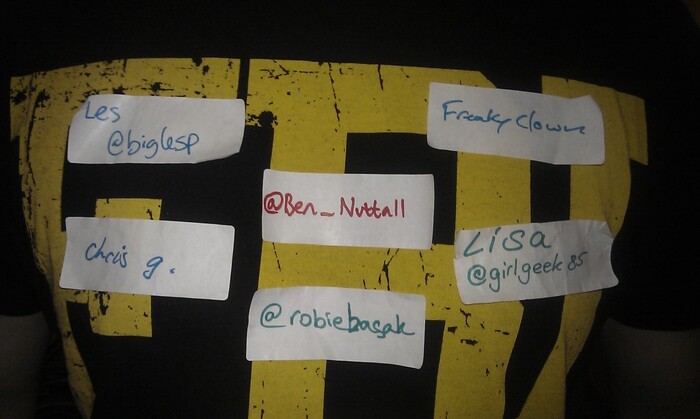 Les
@biglesp
Freaky Clown
@Ben_Nuttall
Chris g.
Lisa
@girlgeek85
@robiebasak